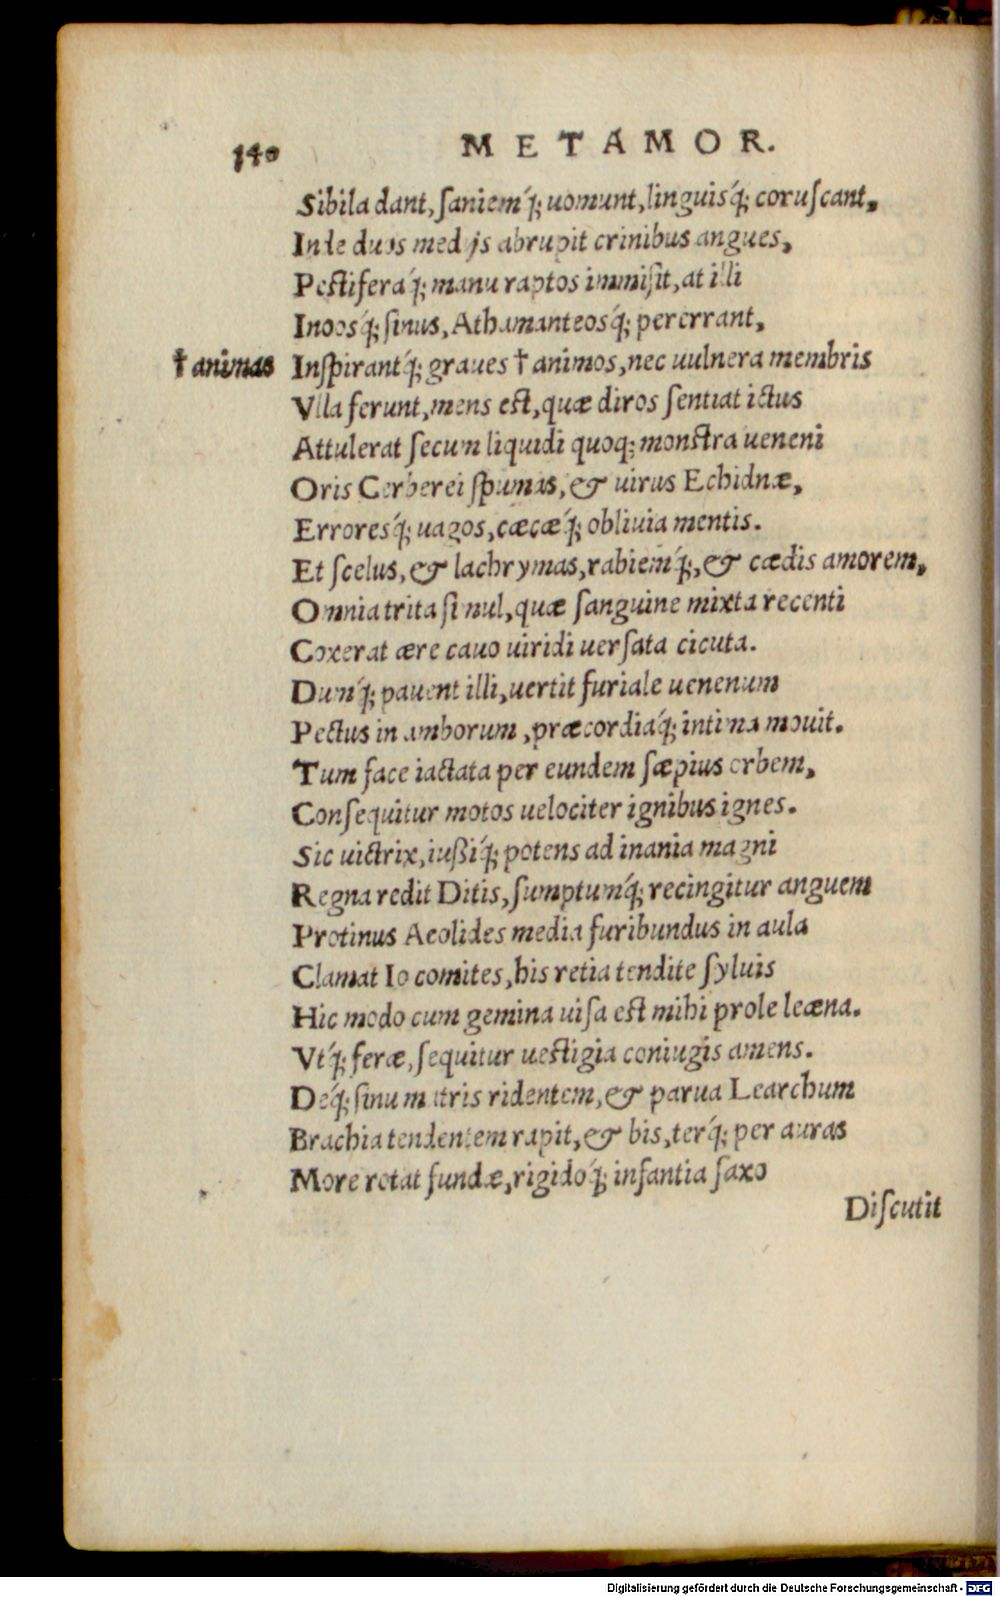 140 METAMOR.
Sibila dant, ſaniemq́; uomunt, linguisq́; coruſcant,
Inde duos medijs abrupit crinibus angues,
Peſtiferaq́; manu raptos immiſit, at illi
Inoosq́; ſinus, Athamanteosq́; pererrant,
† animas Inſpirantq́; graues † animos, nec uulnera membris
Vlla ferunt, mens eſt, quæ diros ſentiat ictus
Attulerat ſecum liquidi quoq; monſtra ueneni
Oris Cerberei ſpumas, & uirus Echidnæ,
Erroresq́; uagos, cæcæq́; obliuia mentis.
Et ſcelus, & lachrymas, rabiemq́;, & cædis amorem,
Omnia trita ſimul, quæ ſanguine mixta recenti
Coxerat ære cauo uiridi uerſata cicuta.
Dumq́; pauent illi, uertit furiale uenenum
Pectus in amborum, præcordiaq́; intima mouit.
Tum face iactata per eundem ſæpius orbem,
Conſequitur motos uelociter ignibus ignes.
Sic uictrix, iußiq́; potens ad inania magni
Regna redit Ditis, ſumptumq́; recingitur anguem
Protinus Aeolides media furibundus in aula
Clamat Io comites, his retia tendite ſyluis
Hic modo cum gemina uiſa eſt mihi prole leæna.
Vtq́; feræ, ſequitur ueſtigia coniugis amens.
Deq́; ſinu matris ridentem, & parua Learchum
Brachia tendentem rapit, & bis, terq́; per auras
More rotat fundæ, rigidoq́; infantia ſaxo
Diſcutit
Digitalisierung gefördert durch die Deutsche Forschungsgemeinschaft - DFG